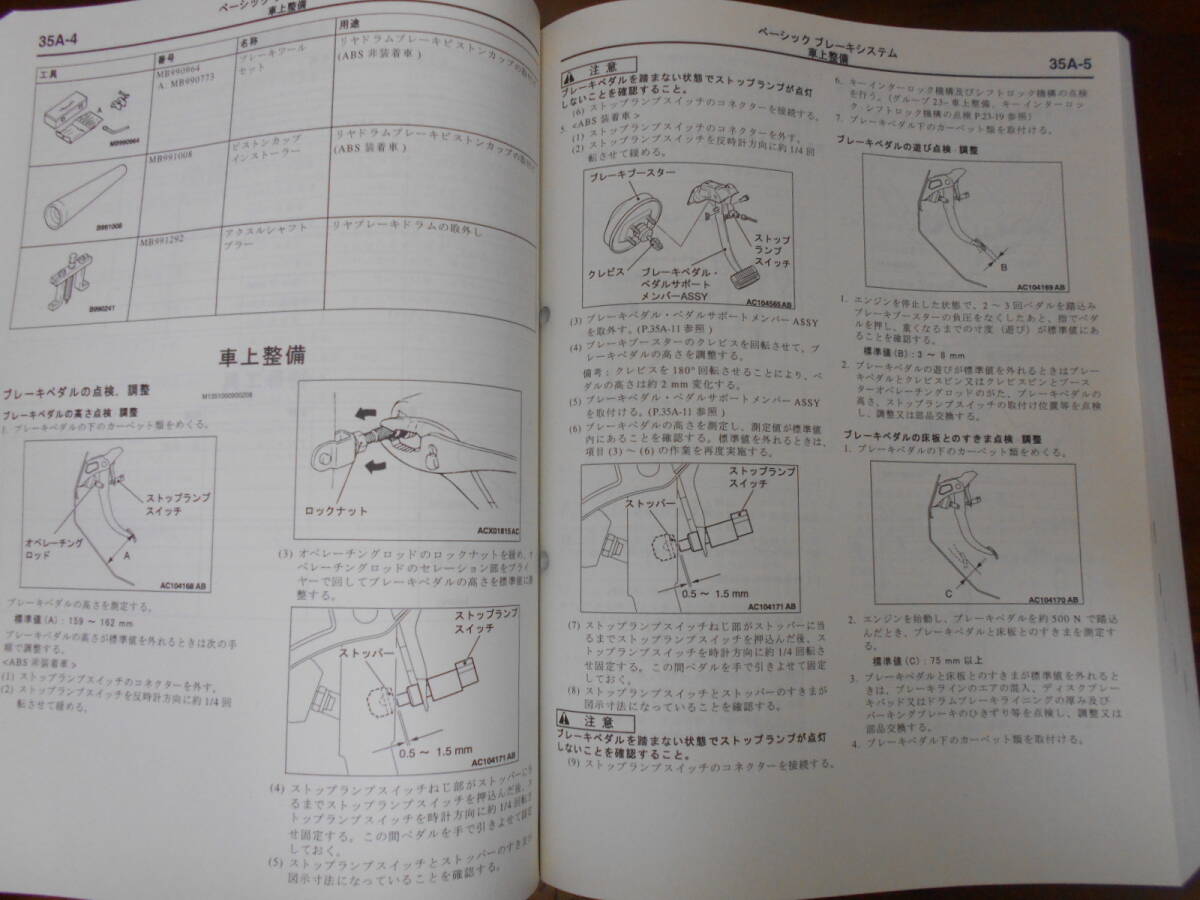 35A-4
車上整備
工具
番号
名称
用途
MB990964
A. MB990773
ブレーキツール
セット
リヤドラムブレーキピストンカップの取付け
(ABS 非装着車)
A
MB990964
MB991008
ピストンカップ
インストーラー
リヤドラムブレーキピストンカップの取付け
(ABS 装着車)
B991008
MB991292
アクスルシャフト
プラー
リヤブレーキドラムの取外し
B990241
車上整備
ブレーキペダルの点検、調整
M1351000900208
ブレーキペダルの高さ点検・調整
1. ブレーキペダルの下のカーペット類をめくる。
ストップランプ
スイッチ
オペレーチング
ロッド
A
AC104168 AB
ブレーキペダルの高さを測定する。
標準値 (A) : 159 ～ 162 mm
ブレーキペダルの高さが標準値を外れるときは次の手
順で調整する。
<ABS 非装着車>
(1) ストップランプスイッチのコネクターを外す。
(2) ストップランプスイッチを反時計方向に約 1/4 回
転させて緩める。
ロックナット
ACX01815 AC
(3) オペレーチングロッドのロックナットを緩め、オ
ペレーチングロッドのセレーション部をプライ
ヤーで回してブレーキペダルの高さを標準値に調
整する。
ストップランプ
スイッチ
ストッパー
0.5 ～ 1.5 mm
AC104171 AB
(4) ストップランプスイッチねじ部がストッパーに当
るまでストップランプスイッチを押込んだ後、ス
トップランプスイッチを時計方向に約 1/4 回転さ
せ固定する。この間ペダルを手で引きよせて固定
しておく。
(5) ストップランプスイッチとストッパーのすきまが
図示寸法になっていることを確認する。
ベーシック ブレーキシステム
車上整備
35A-5
注意
ブレーキペダルを踏まない状態でストップランプが点灯
しないことを確認すること。
(6) ストップランプスイッチのコネクターを接続する。
5. <ABS 装着車>
(1) ストップランプスイッチのコネクターを外す。
(2) ストップランプスイッチを反時計方向に約 1/4 回
転させて緩める。
ブレーキブースター
クレビス
ブレーキペダル・
ペダルサポート
メンバーASSY
ストップ
ランプ
スイッチ
AC104565 AB
(3) ブレーキペダル・ペダルサポートメンバー ASSY
を取外す。(P.35A-11 参照)
(4) ブレーキブースターのクレビスを回転させて、ブ
レーキペダルの高さを調整する。
備考 : クレビスを 180° 回転させることにより、ペ
ダルの高さは約 2 mm 変化する。
(5) ブレーキペダル・ペダルサポートメンバー ASSY
を取付ける。(P.35A-11 参照)
(6) ブレーキペダルの高さを測定し、測定値が標準値
内にあることを確認する。標準値を外れるときは、
項目 (3) ～ (6) の作業を再度実施する。
ストップランプ
スイッチ
ストッパー
0.5 ～ 1.5 mm
AC104171 AB
(7) ストップランプスイッチねじ部がストッパーに当
るまでストップランプスイッチを押込んだ後、ス
トップランプスイッチを時計方向に約 1/4 回転さ
せ固定する。この間ペダルを手で引きよせて固定
しておく。
(8) ストップランプスイッチとストッパーのすきまが
図示寸法になっていることを確認する。
注意
ブレーキペダルを踏まない状態でストップランプが点灯
しないことを確認すること。
(9) ストップランプスイッチのコネクターを接続する。
6. キーインターロック機構及びシフトロック機構の点検
を行う。(グループ 23- 車上整備、キーインターロッ
ク、シフトロック機構の点検 P.23-19 参照)
7. ブレーキペダル下のカーペット類を取付ける。
ブレーキペダルの遊び点検・調整
B
AC104169 AB
1. エンジンを停止した状態で、2 ～ 3 回ペダルを踏込み
ブレーキブースターの負圧をなくしたあと、指でペダ
ルを押し、重くなるまでの寸度 (遊び) が標準値にあ
ることを確認する。
標準値 (B) : 3 ～ 8 mm
2. ブレーキペダルの遊びが標準値を外れるときはブレー
キペダルとクレビスピン又はクレビスピンとブース
ターオペレーチングロッドのがた、ブレーキペダルの
高さ、ストップランプスイッチの取付け位置等を点検
し、調整又は部品交換する。
ブレーキペダルの床板とのすきま点検・調整
1. ブレーキペダルの下のカーペット類をめくる。
C
AC104170 AB
2. エンジンを始動し、ブレーキペダルを約 500 N で踏込
んだとき、ブレーキペダルと床板とのすきまを測定す
る。
標準値 (C) : 75 mm 以上
3. ブレーキペダルと床板とのすきまが標準値を外れると
きは、ブレーキラインのエアの混入、ディスクブレー
キパッド又はドラムブレーキライニングの厚み及び
パーキングブレーキのひきずり等を点検し、調整又は
部品交換する。
4. ブレーキペダル下のカーペット類を取付ける。